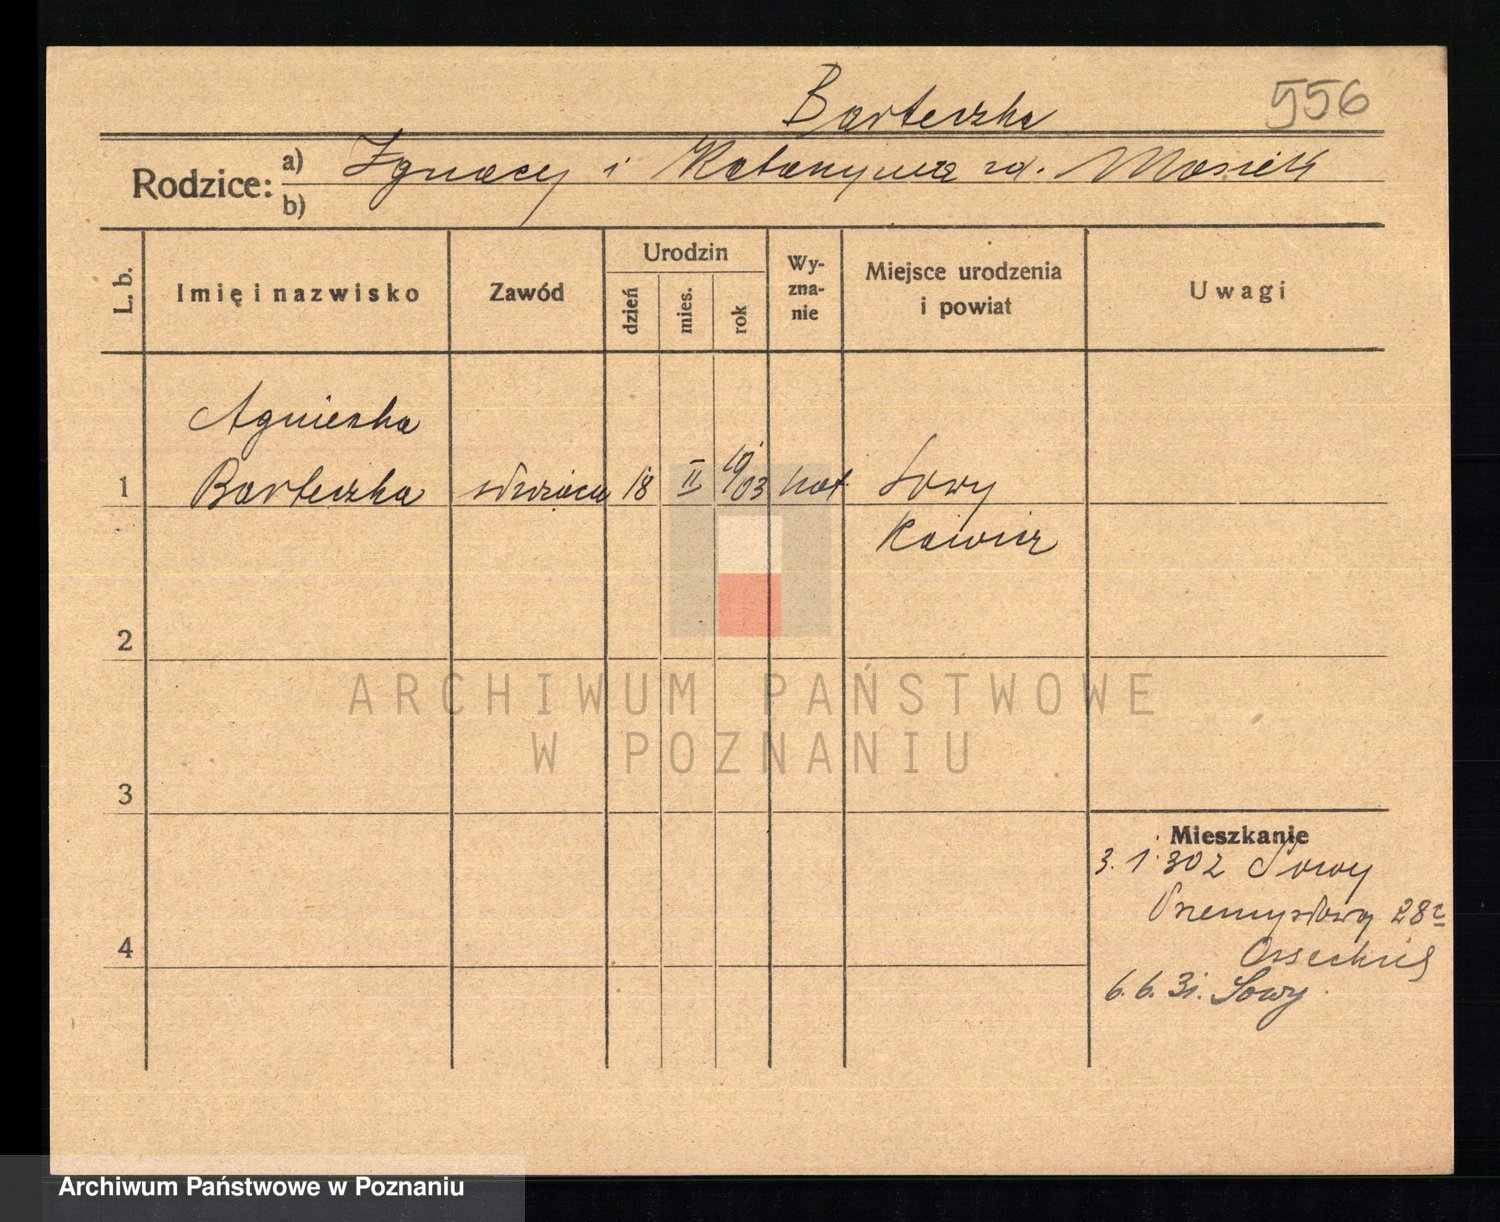 Barteczka
556
Rodzice:
a) Ignacy i Katarzyna zd. Masiek
b)
L. b.
Imię i nazwisko
Zawód
Urodzin
dzień
mies.
rok
Wy-
zna-
nie
Miejsce urodzenia
i powiat
Uwagi
Agnieszka
1 Barteczka 18 II 19/03 kat Sowy
Rawicz
2
3
4
Mieszkanie
3. 1. 302 Sowy
Przemysłowa 28
6. 6. 31. Sowy
ARCHIWUM PAŃSTWOWE
W POZNANIU
Archiwum Państwowe w Poznaniu